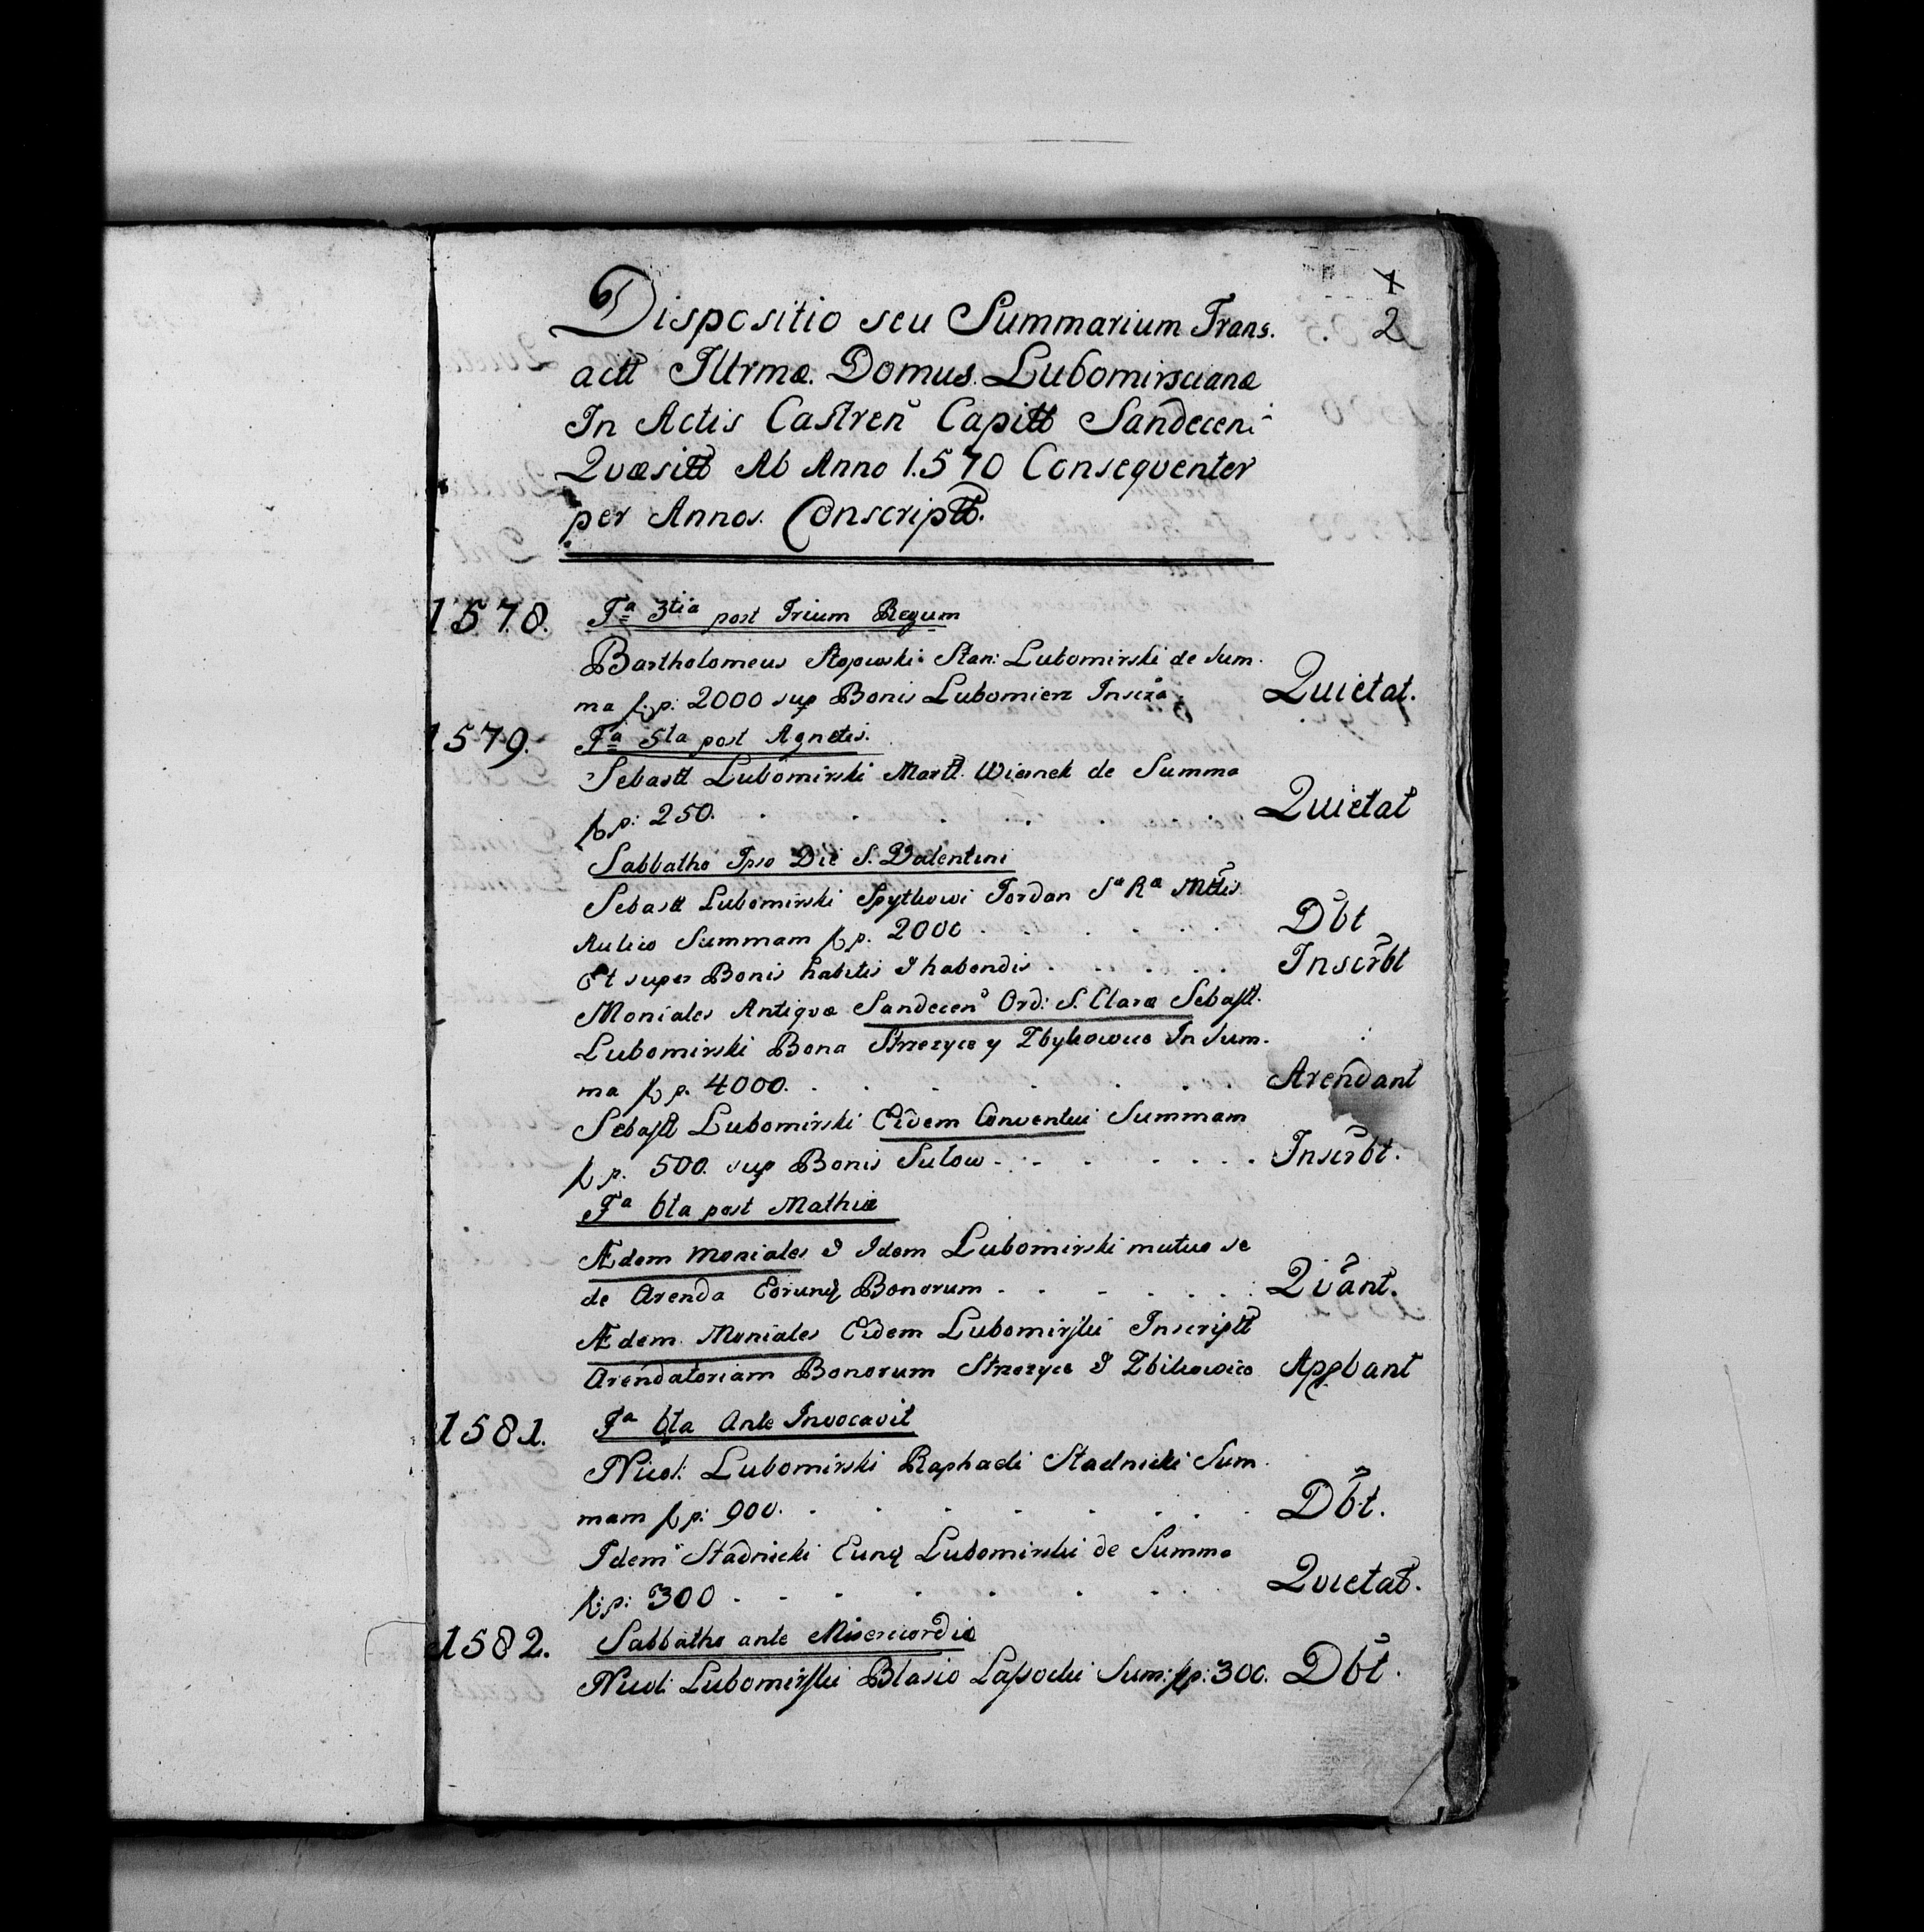 1
2
Dispositio seu Summarium Trans.
actt Illrmæ Domus Lubomirscianæ
In Actis Castren Capitt Sandecen:
Quæsitt Ab Anno 1570 Consequenter
per Annos. Conscriptt.
1578. Fa 3tia post Trium Regum
Bartholomeus Stan: Lubomirski de Sum-
ma fl: p: 2000 sup Bonis Lubomierz Inscra. Quietat.
1579. Fa 5ta post Agnetis.
Sebastt Lubomirski Martt. Wianek de Summa
fl p: 250. Quietat
Sabbatho Ipso Die S. Valentini
Sebastt Lubomirski Spytkowi Jordan Sa Ra Mttis
Aulico Summam fl p. 2000 Dbt
Et super Bonis habitis & habendis Inscrbt
Moniales Antiquæ Sandecen Ord: S. Claræ Sebastt.
Lubomirski Bona Strzezyce y Zbykowice In Sum-
ma fl p. 4000. Arendant
Sebastt Lubomirski Eidem Conventui Summam
fl p. 500. sup Bonis Sulow Inscrbt.
Fa 6ta post Mathiæ
Ædem Moniales & Idem Lubomirski mutuo se
de Arenda Eorunq Bonorum Qvant.
Ædem Moniales Eidem Lubomirski Inscriptt
Arendatoriam Bonorum Strzezyce & Zbikowice Appbant
1581. Fa 6ta Ante Invocavit
Nicol: Lubomirski Raphaeli Stadnicki Sum-
mam fl p: 900. Dbt.
Idem Stadnicki Eunq Lubomirski de Summa
fl: p: 300 Quietat.
1582. Sabbatho ante Misericordiæ
Nicol: Lubomirski Blasio Lassocki Sum: fl p: 300. Dbt.